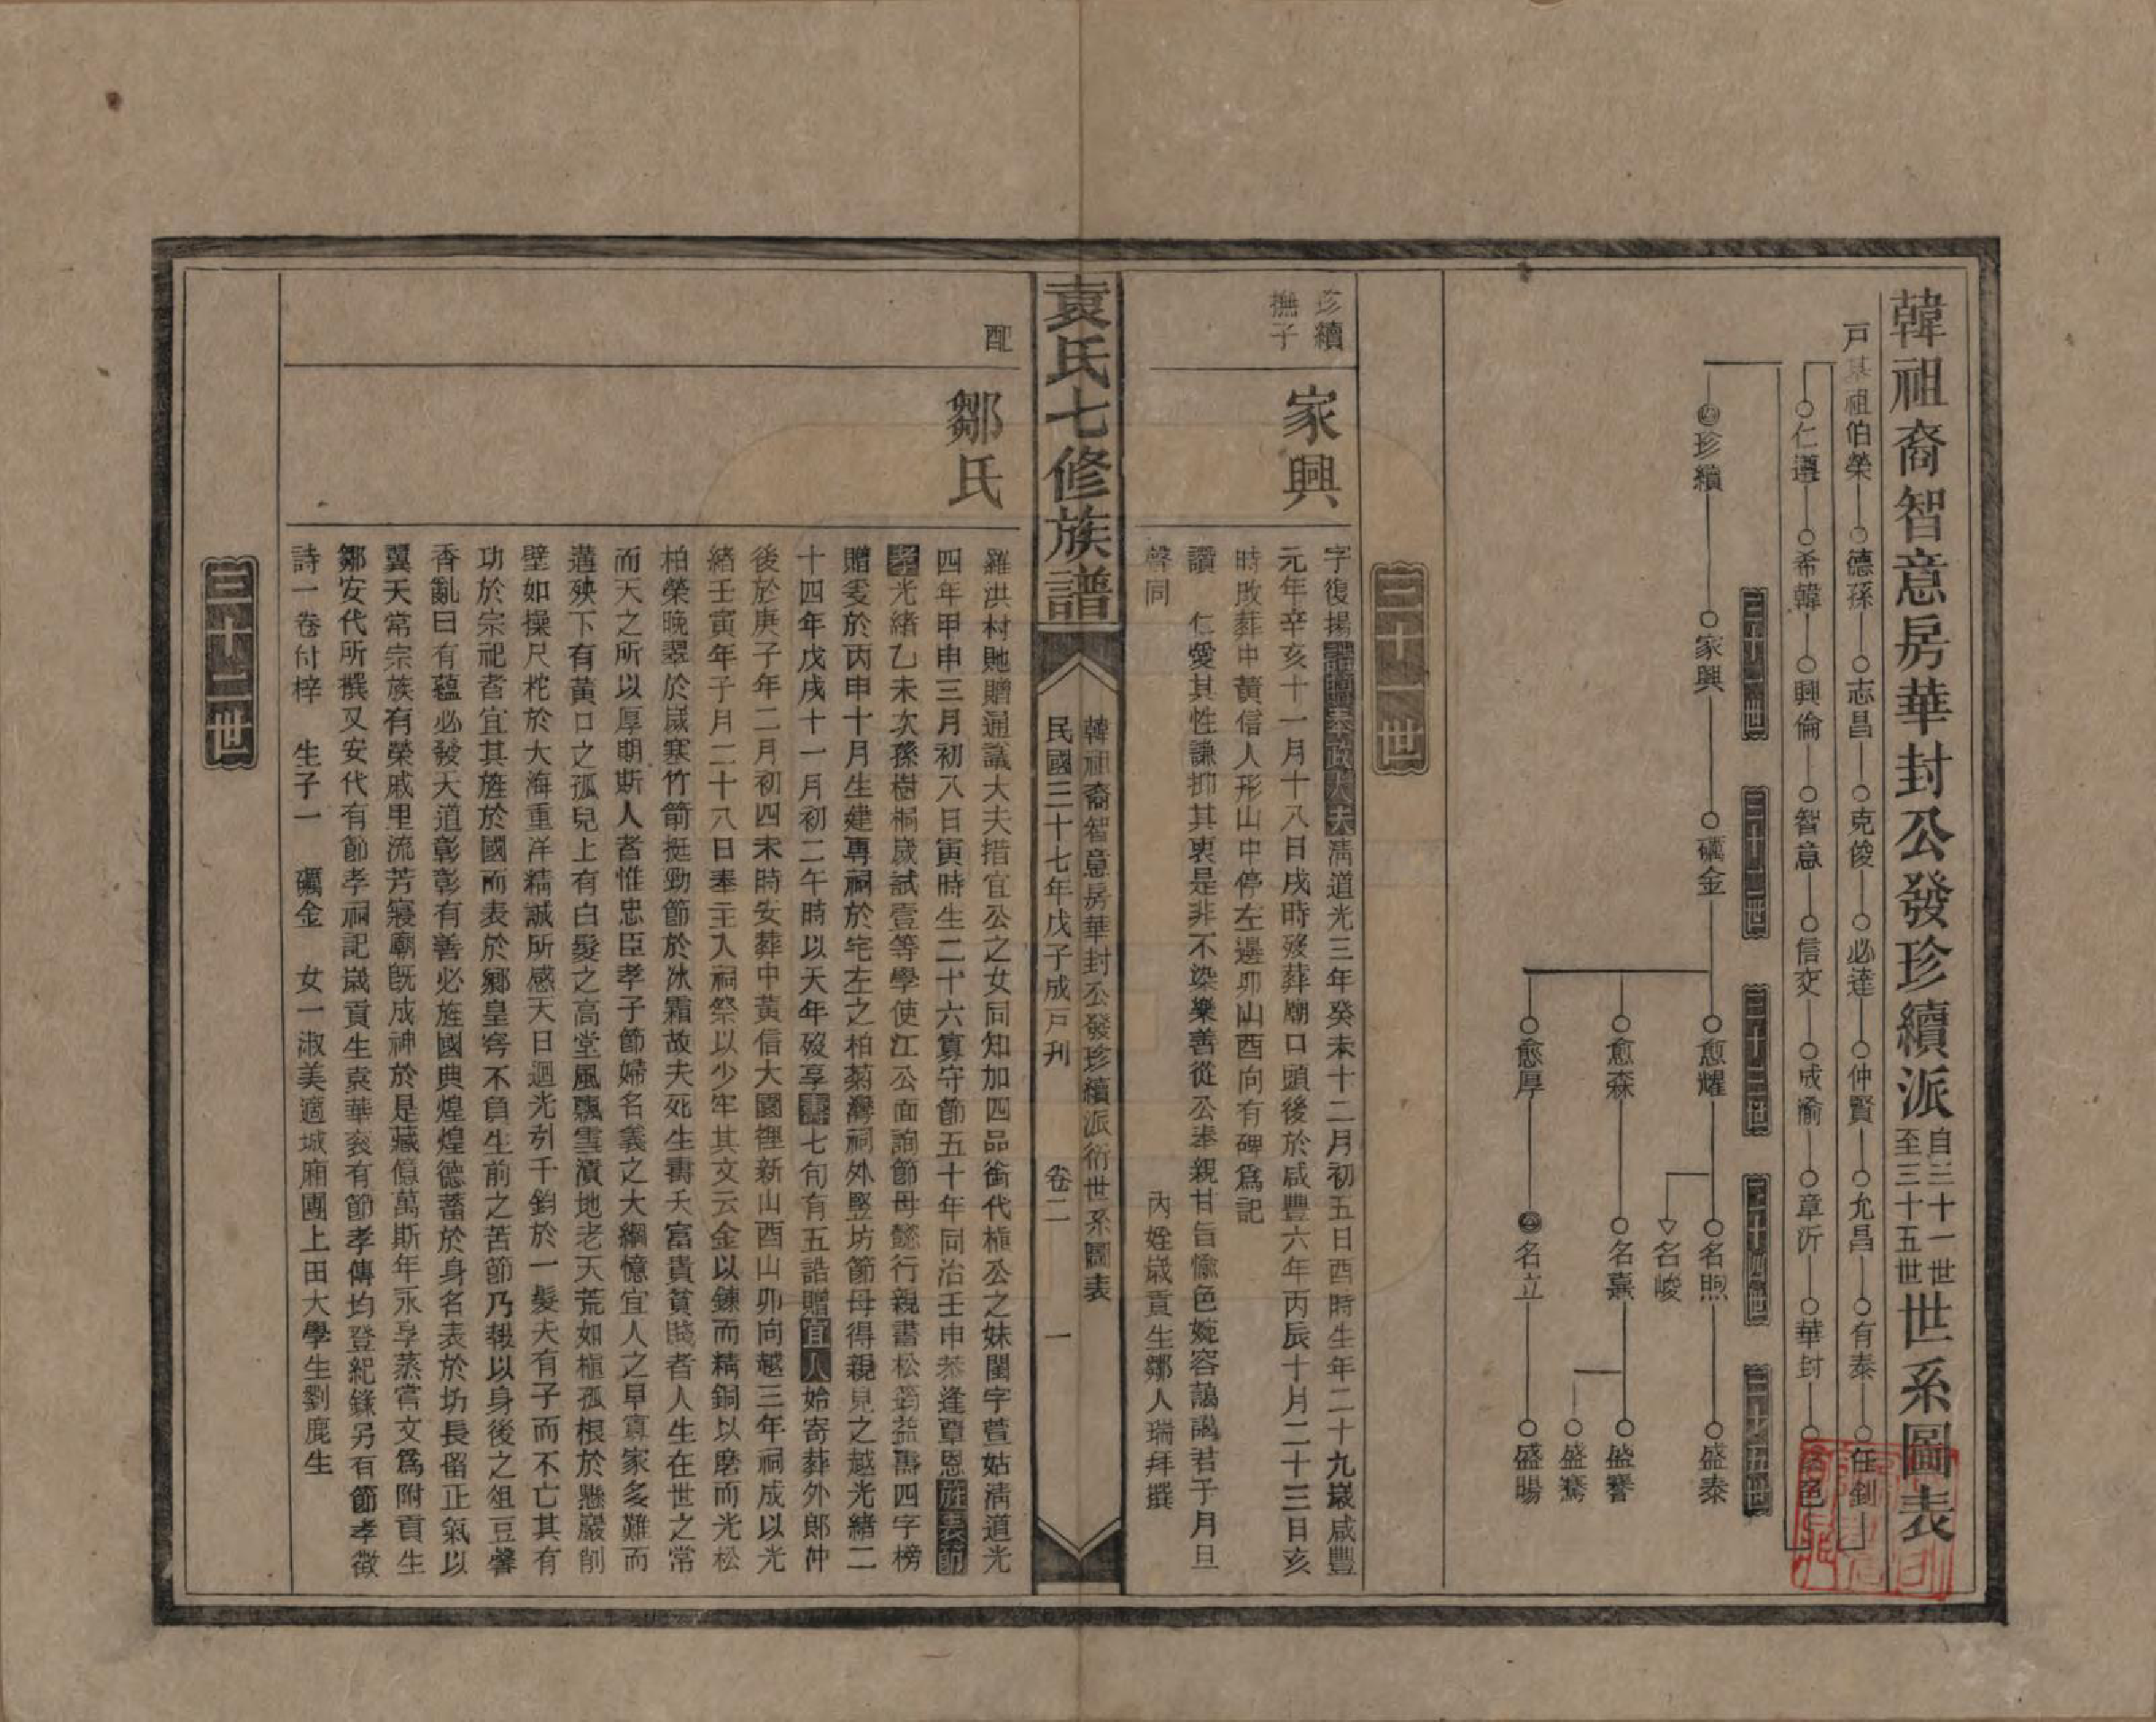 韓祖裔智意房華封公發珍續派自三十一世至三十五世世系圖表
戶基祖伯榮 德孫 志昌 克俊 必達 仲賢 允昌 有泰 任釗
仁遵 希韓 興倫 智意 信交 成瑜 章沂 華封
三十一世 三十二世 三十三世 三十四世 三十五世
珍續 家興 礪金 愈耀 名煦 盛泰
名峻
愈森 名熹 盛馨
盛鶱
愈厚 名立 盛暘
三十一世
珍續
撫子
家興
字復揚誥贈奉政大夫淸道光三年癸未十二月初五日酉時生年二十九歲咸豐
元年辛亥十一月十八日戌時歿葬廟口頭後於咸豐六年丙辰十月二十三日亥
時改葬中黃信人形山中停左邊卯山酉向有碑爲記
讚 仁愛其性謙抑其衷是非不染樂善從公奉親甘旨愉色婉容藹藹君子月旦
聲同 內姪歲貢生鄒人瑞拜撰
袁氏七修族譜
韓祖裔智意房華封公發珍續派衍世系圖表
民國三十七年戊子成戶刊 卷二 一
配
鄒氏
羅洪村貤贈通議大夫措宜公之女同知加四品銜代植公之妹閨字萱姑淸道光
四年甲申三月初八日寅時生二十六寡守節五十年同治壬申恭逢覃恩旌表節
孝光緒乙未次孫樹桐歲試壹等學使江公面詢節母懿行親書松筠益壽四字榜
贈爰於丙申十月生建專祠於宅左之柏菊灣祠外竪坊節母得親見之越光緒二
十四年戊戌十一月初二午時以天年歿享壽七旬有五誥贈宜人始寄葬外郎沖
後於庚子年二月初四未時安葬中黃信大園裡新山酉山卯向越三年祠成以光
緒壬寅年子月二十八日奉主入祠祭以少牢其文云金以鍊而精銅以磨而光松
柏榮晚翠於歲寒竹箭挺勁節於冰霜故夫死生壽夭富貴貧賤者人生在世之常
而天之所以厚期斯人者惟忠臣孝子節婦名義之大綱憶宜人之早寡家多難而
遘殃下有黃口之孤兒上有白髮之高堂風飄雪漬地老天荒如植孤根於懸巖削
壁如操尺柁於大海重洋精誠所感天日迴光列千鈞於一髮夫有子而不亡其有
功於宗祀者宜其旌於國而表於鄉皇穹不負生前之苦節乃報以身後之俎豆馨
香亂曰有蘊必發天道彰彰有善必旌國典煌煌德蓄於身名表於坊長留正氣以
翼天常宗族有榮戚里流芳寢廟旣成神於是藏億萬斯年永享蒸嘗文爲附貢生
鄒安代所撰又安代有節孝祠記歲貢生袁華袞有節孝傳均登紀錄另有節孝徵
詩一卷付梓 生子一 礪金 女一淑美適城廂團上田大學生劉鹿生
三十二世